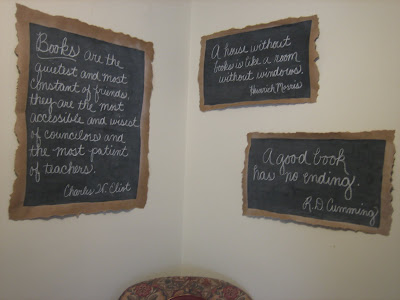 Books are the
quietest and most
constant of friends,
they are the most
accessible and wisest
of councilors and
the most patient
of teachers.
Charles W. Eliot
A house without
books is like a room
without windows.
Heinrich Morris
A good book
has no ending.
R.D. Cumming